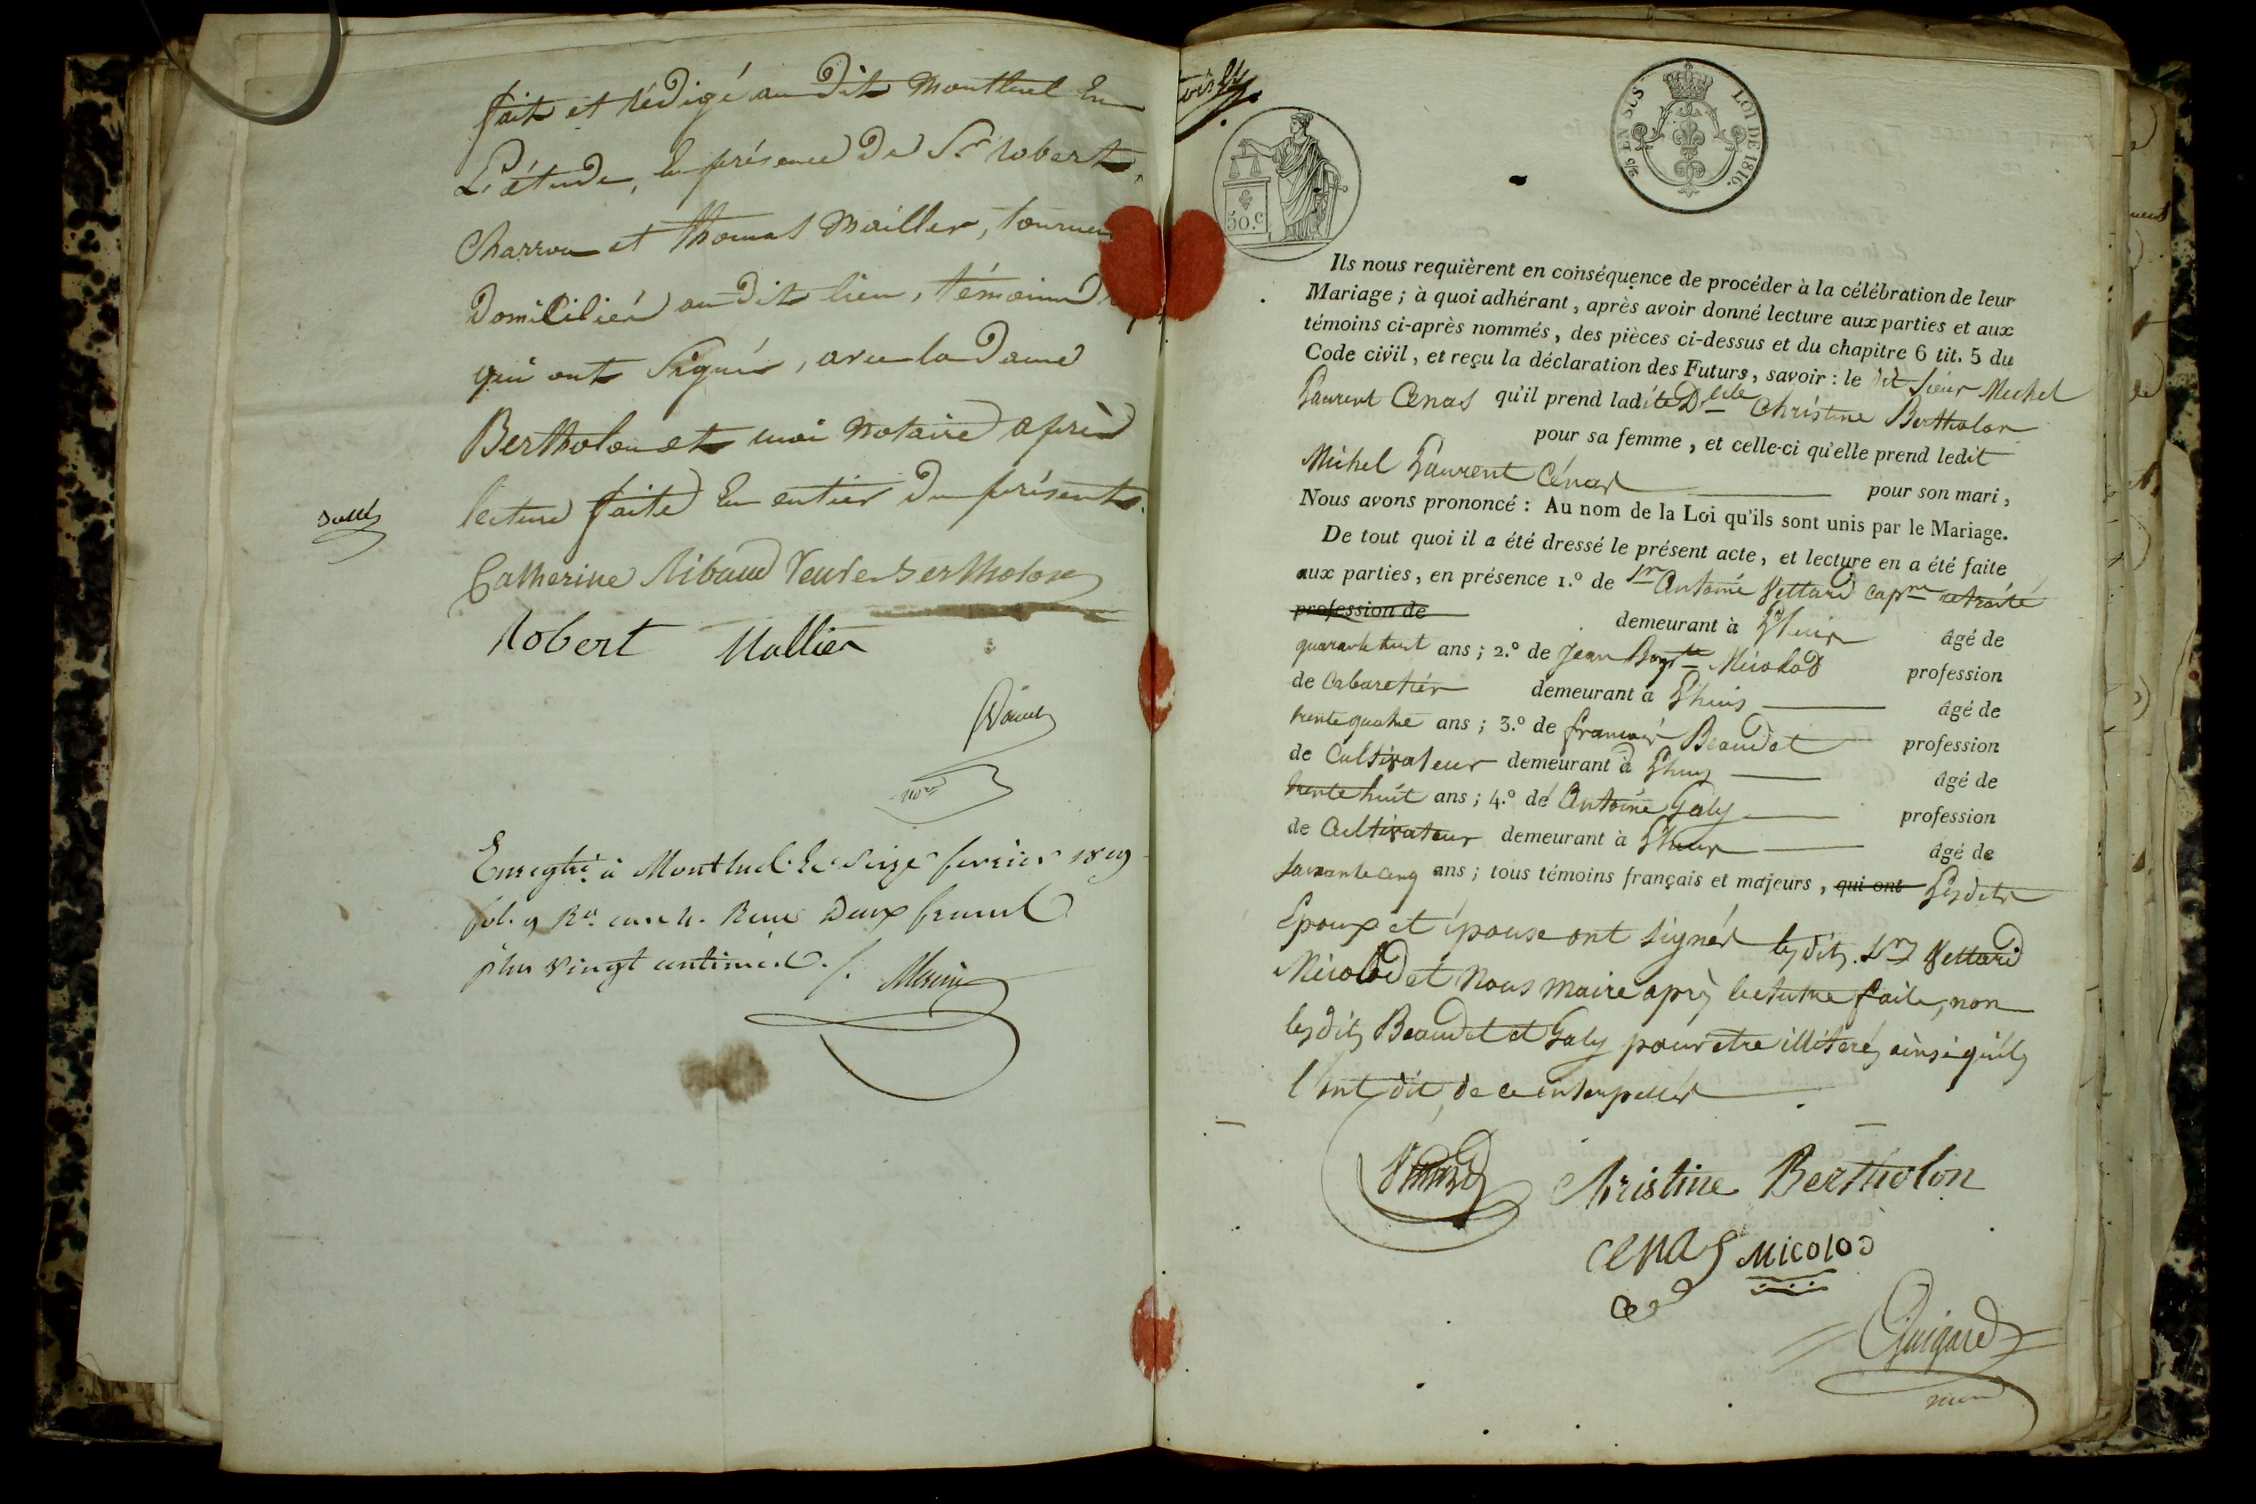 fait et rédigé au dit Montluel En
L'étude, En présence De Sr Robert,
Charron et Thomas Mailler, tourneu
Domiciliés au dit lieu, témoins
qui ont Signés, avec la Dame
Bertholon et moi Notaire après
lecture faite En entier Du présent.
Catherine Ribaud Veuve Bertholon
Robert Mallier
Enregtré à Montluel le Seize fevrier 1819
fol. 9 Ro. case 4. Reçu Deux francs
plus vingt centimes.
EN SUS LOI DE 1816.
50.C
Ils nous requièrent en conséquence de procéder à la célébration de leur
Mariage ; à quoi adhérant, après avoir donné lecture aux parties et aux
témoins ci-après nommés, des pièces ci-dessus et du chapitre 6 tit. 5 du
Code civil, et reçu la déclaration des Futurs, savoir : le dit Sieur Michel
Laurent Cenas qu'il prend ladite Dlle Christine Bertholon
pour sa femme, et celle-ci qu'elle prend ledit
Michel Laurent Cénas pour son mari,
Nous avons prononcé : Au nom de la Loi qu'ils sont unis par le Mariage.
De tout quoi il a été dressé le présent acte, et lecture en a été faite
aux parties, en présence 1.º de Sr Antoine Vettard capne retraité
profession de demeurant à Lhuis âgé de
quarante huit ans ; 2.º de Jean Bapte Micolod profession
de Cabaretier demeurant à Lhuis âgé de
trente quatre ans ; 3.º de françois Beaudet profession
de Cultivateur demeurant à Lhuis âgé de
trente huit ans ; 4.º de Antoine Galy profession
de Cultivateur demeurant à Lhuis âgé de
Soixante cinq ans ; tous témoins français et majeurs, qui ont Lesdits
Epoux et épouse ont signés lesdits Srs Vettard
Micolod et Nous maire après lecture faite, non
lesdits Beaudet et Galy pour etre illiterés ainsi qu'ils
l'ont dit, de ce interpellés
Vettard Christine Bertholon
Cenas Micolod
Guigard